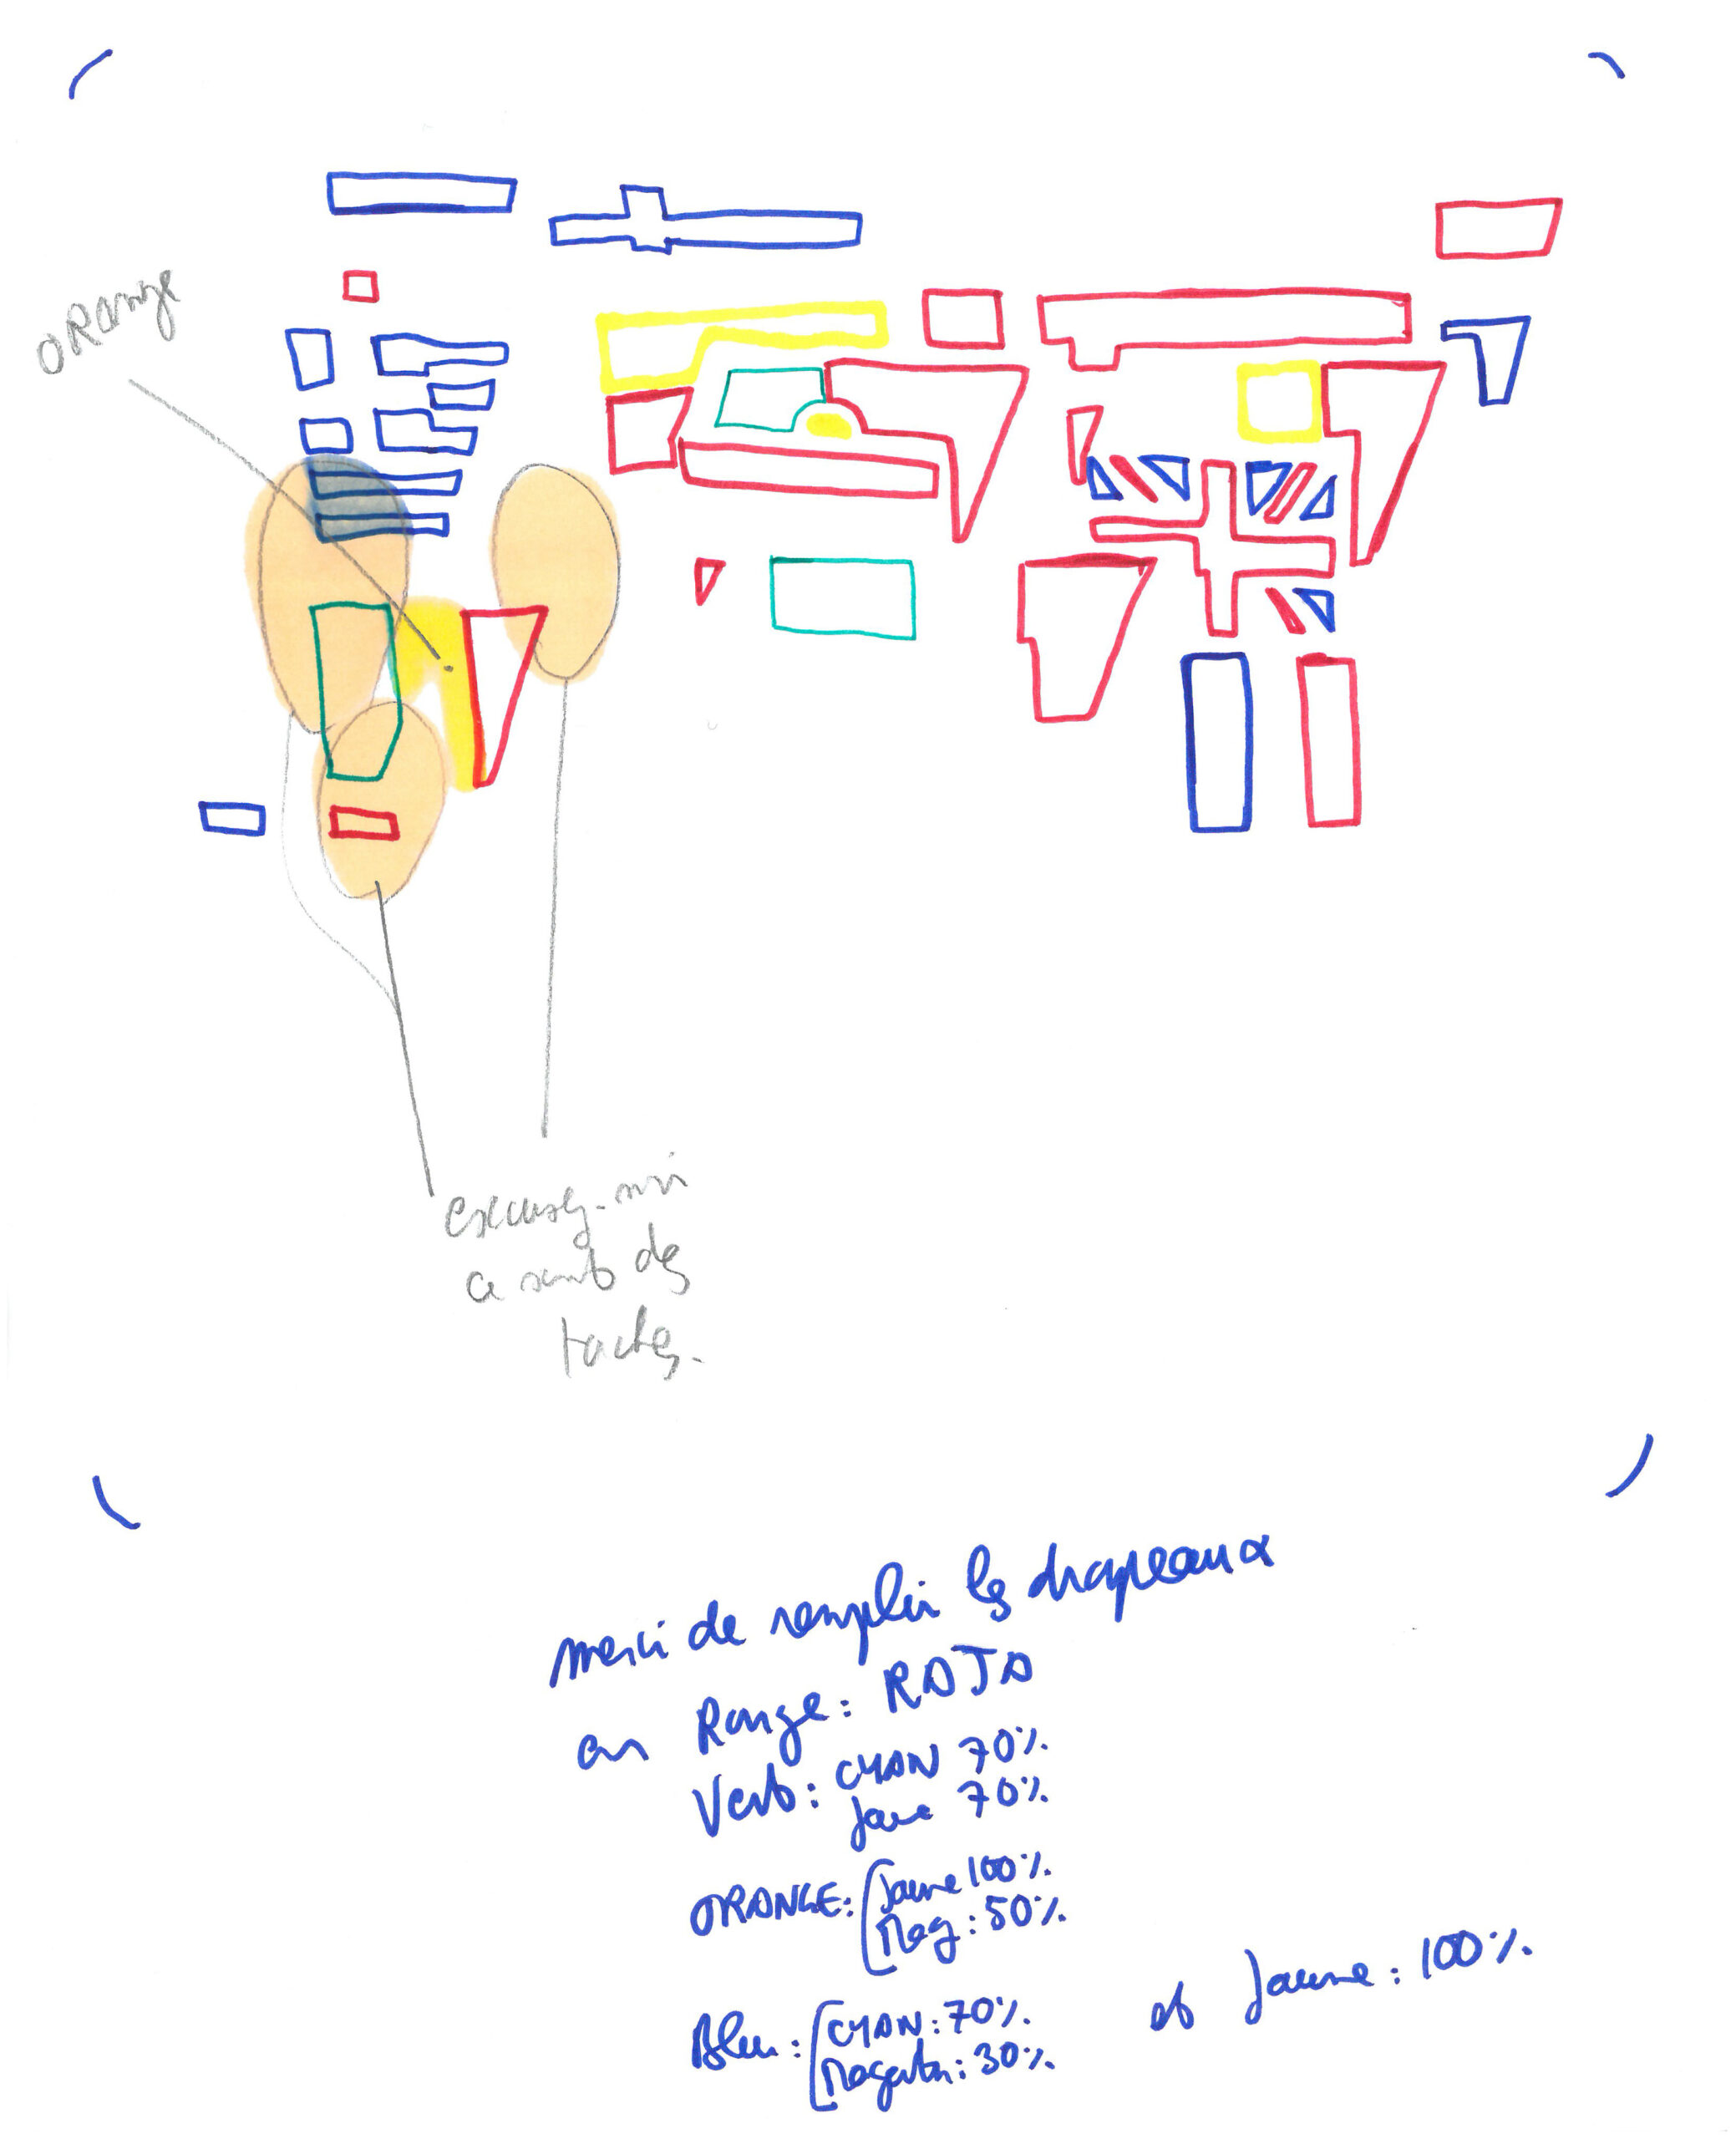 ORange
excusez-moi
ce sont des
taches.
merci de remplir les drapeaux
en Rouge: RDJD
Vert: CYAN 70%
jaune 70%
ORANGE: Jaune 100%
Mag: 50%
Bleu: CYAN: 70%
Magenta: 30%
et Jaune: 100%